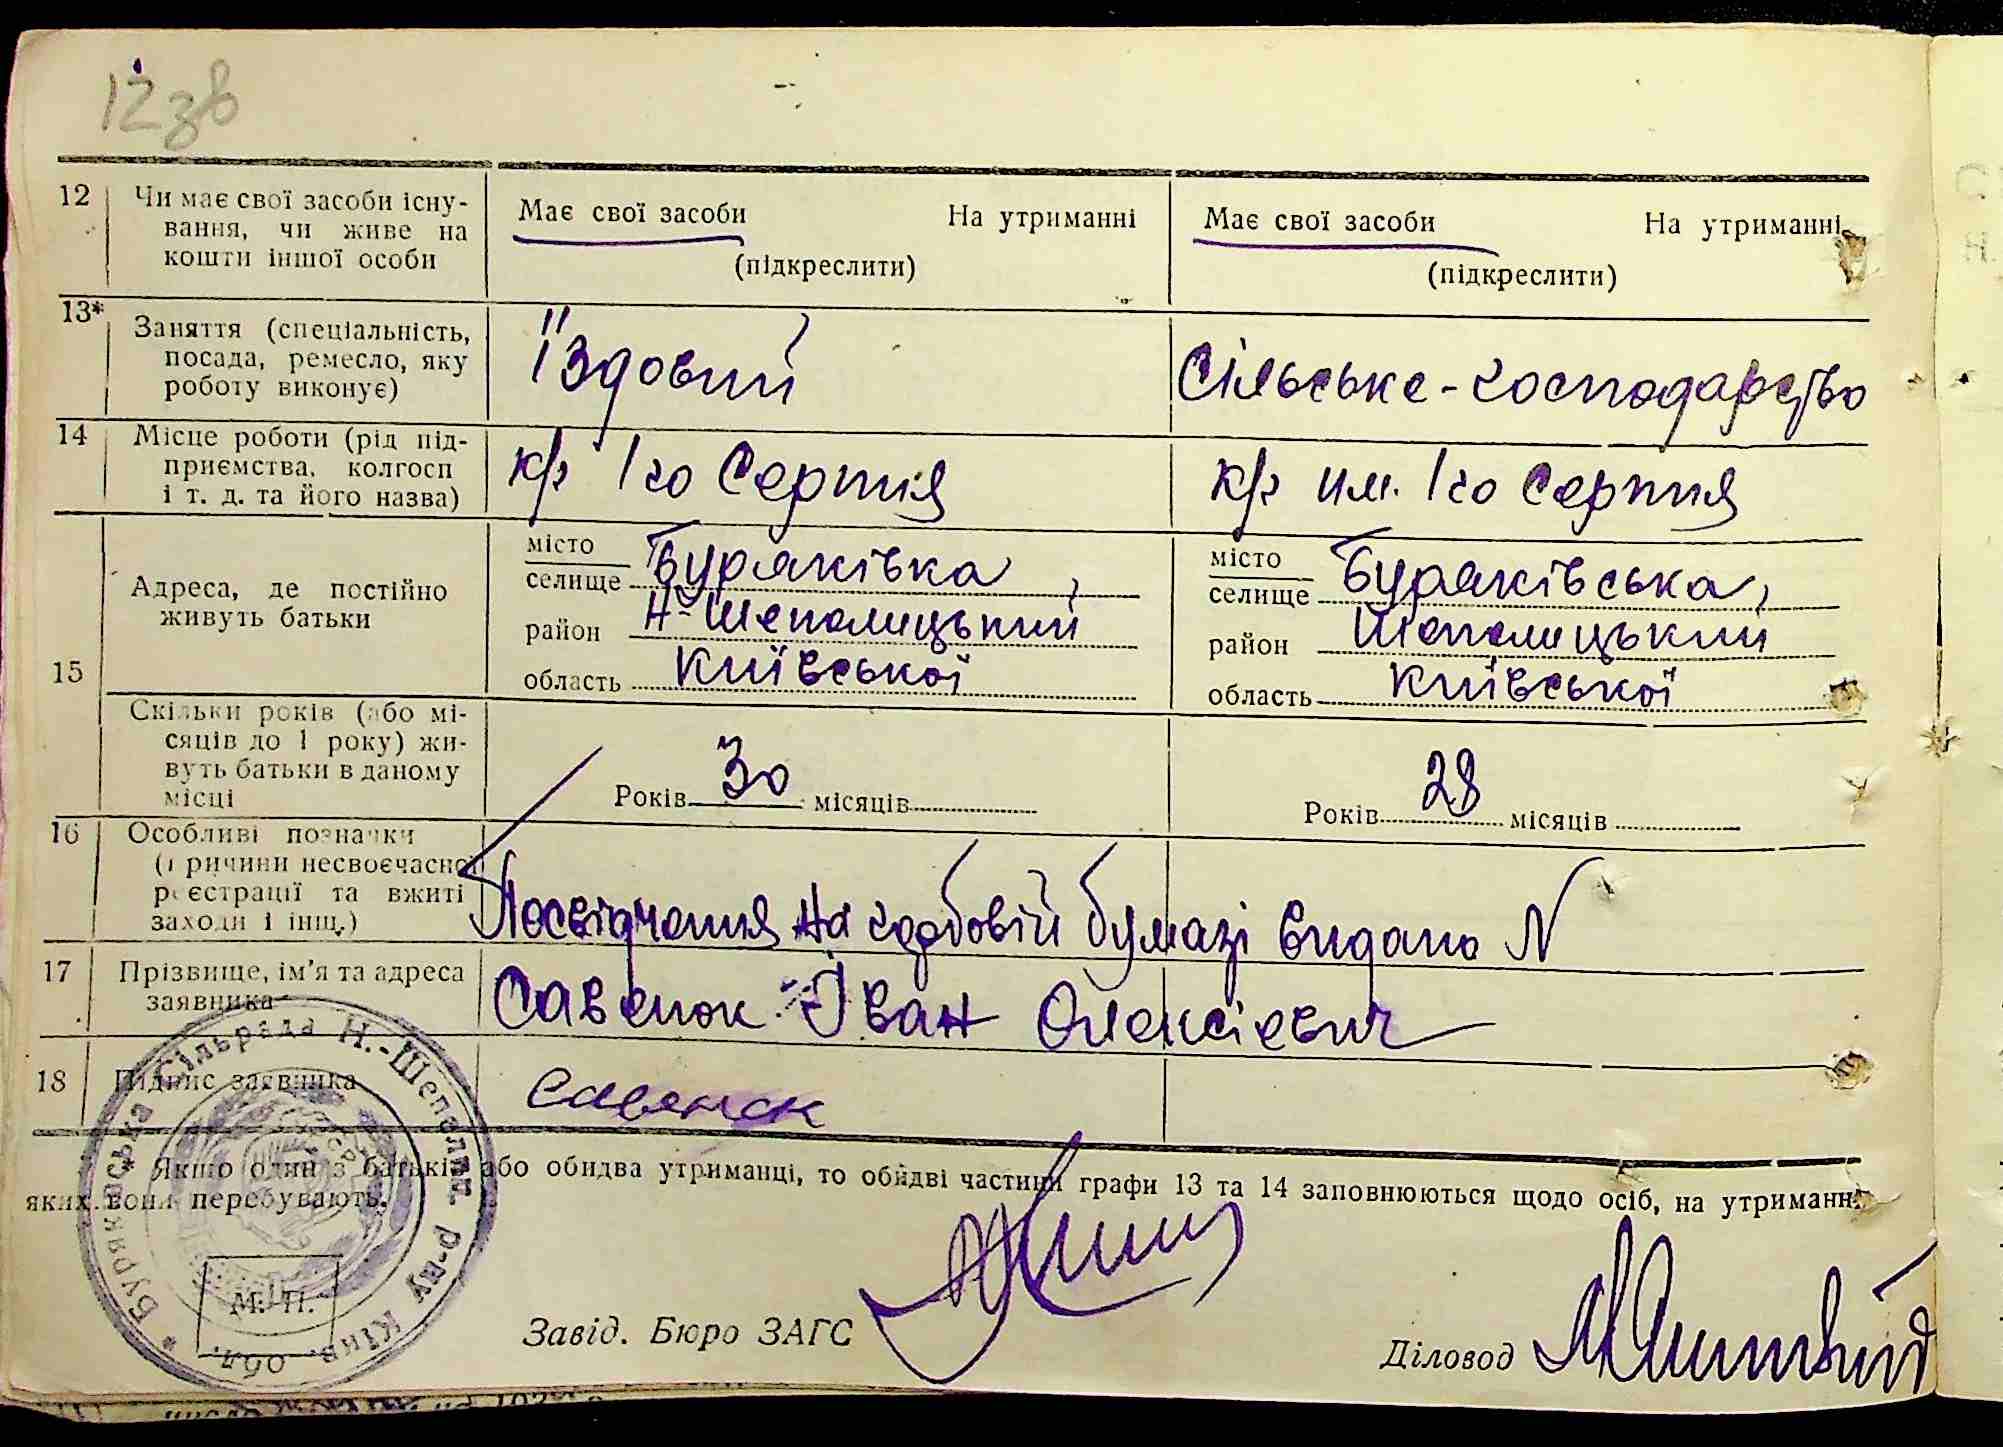 12 зв
12 Чи має свої засоби існу- Має свої засоби На утриманні Має свої засоби На утриманні
вання, чи живе на
кошти іншої особи (підкреслити) (підкреслити)
13* Заняття (спеціальність,
посада, ремесло, яку Їздовий Сільське-господарство
роботу виконує)
14 Місце роботи (рід під-
приємства, колгосп к/г 1го Серпня к/г им. 1го Серпня
і т. д. та його назва)
15 Адреса, де постійно
живуть батьки
місто
селище Буряківка,
район Н-Шепелицький
область Київської
місто
селище Буряківська,
район Шепелицький
область Київської
Скільки років (або мі-
сяців до 1 року) жи-
вуть батьки в даному
місці
Років 30 місяців Років 28 місяців
16 Особливі позначки
(причини несвоєчасної
реєстрації та вжиті
заходи і інш.)
Посвідчення на гербовій бумазі видано N
17 Прізвище, ім'я та адреса
заявника
Савенок Іван Олексієвич
18 Підпис заявника Савенок
* Якщо один з батьків або обидва утриманці, то обидві частини графи 13 та 14 заповнюються щодо осіб, на утриманні
яких вони перебувають.
* Буряківська Сільрада Н.-Шепелиц. р-ну Київ. обл.
М. П.
Завід. Бюро ЗАГС
Діловод